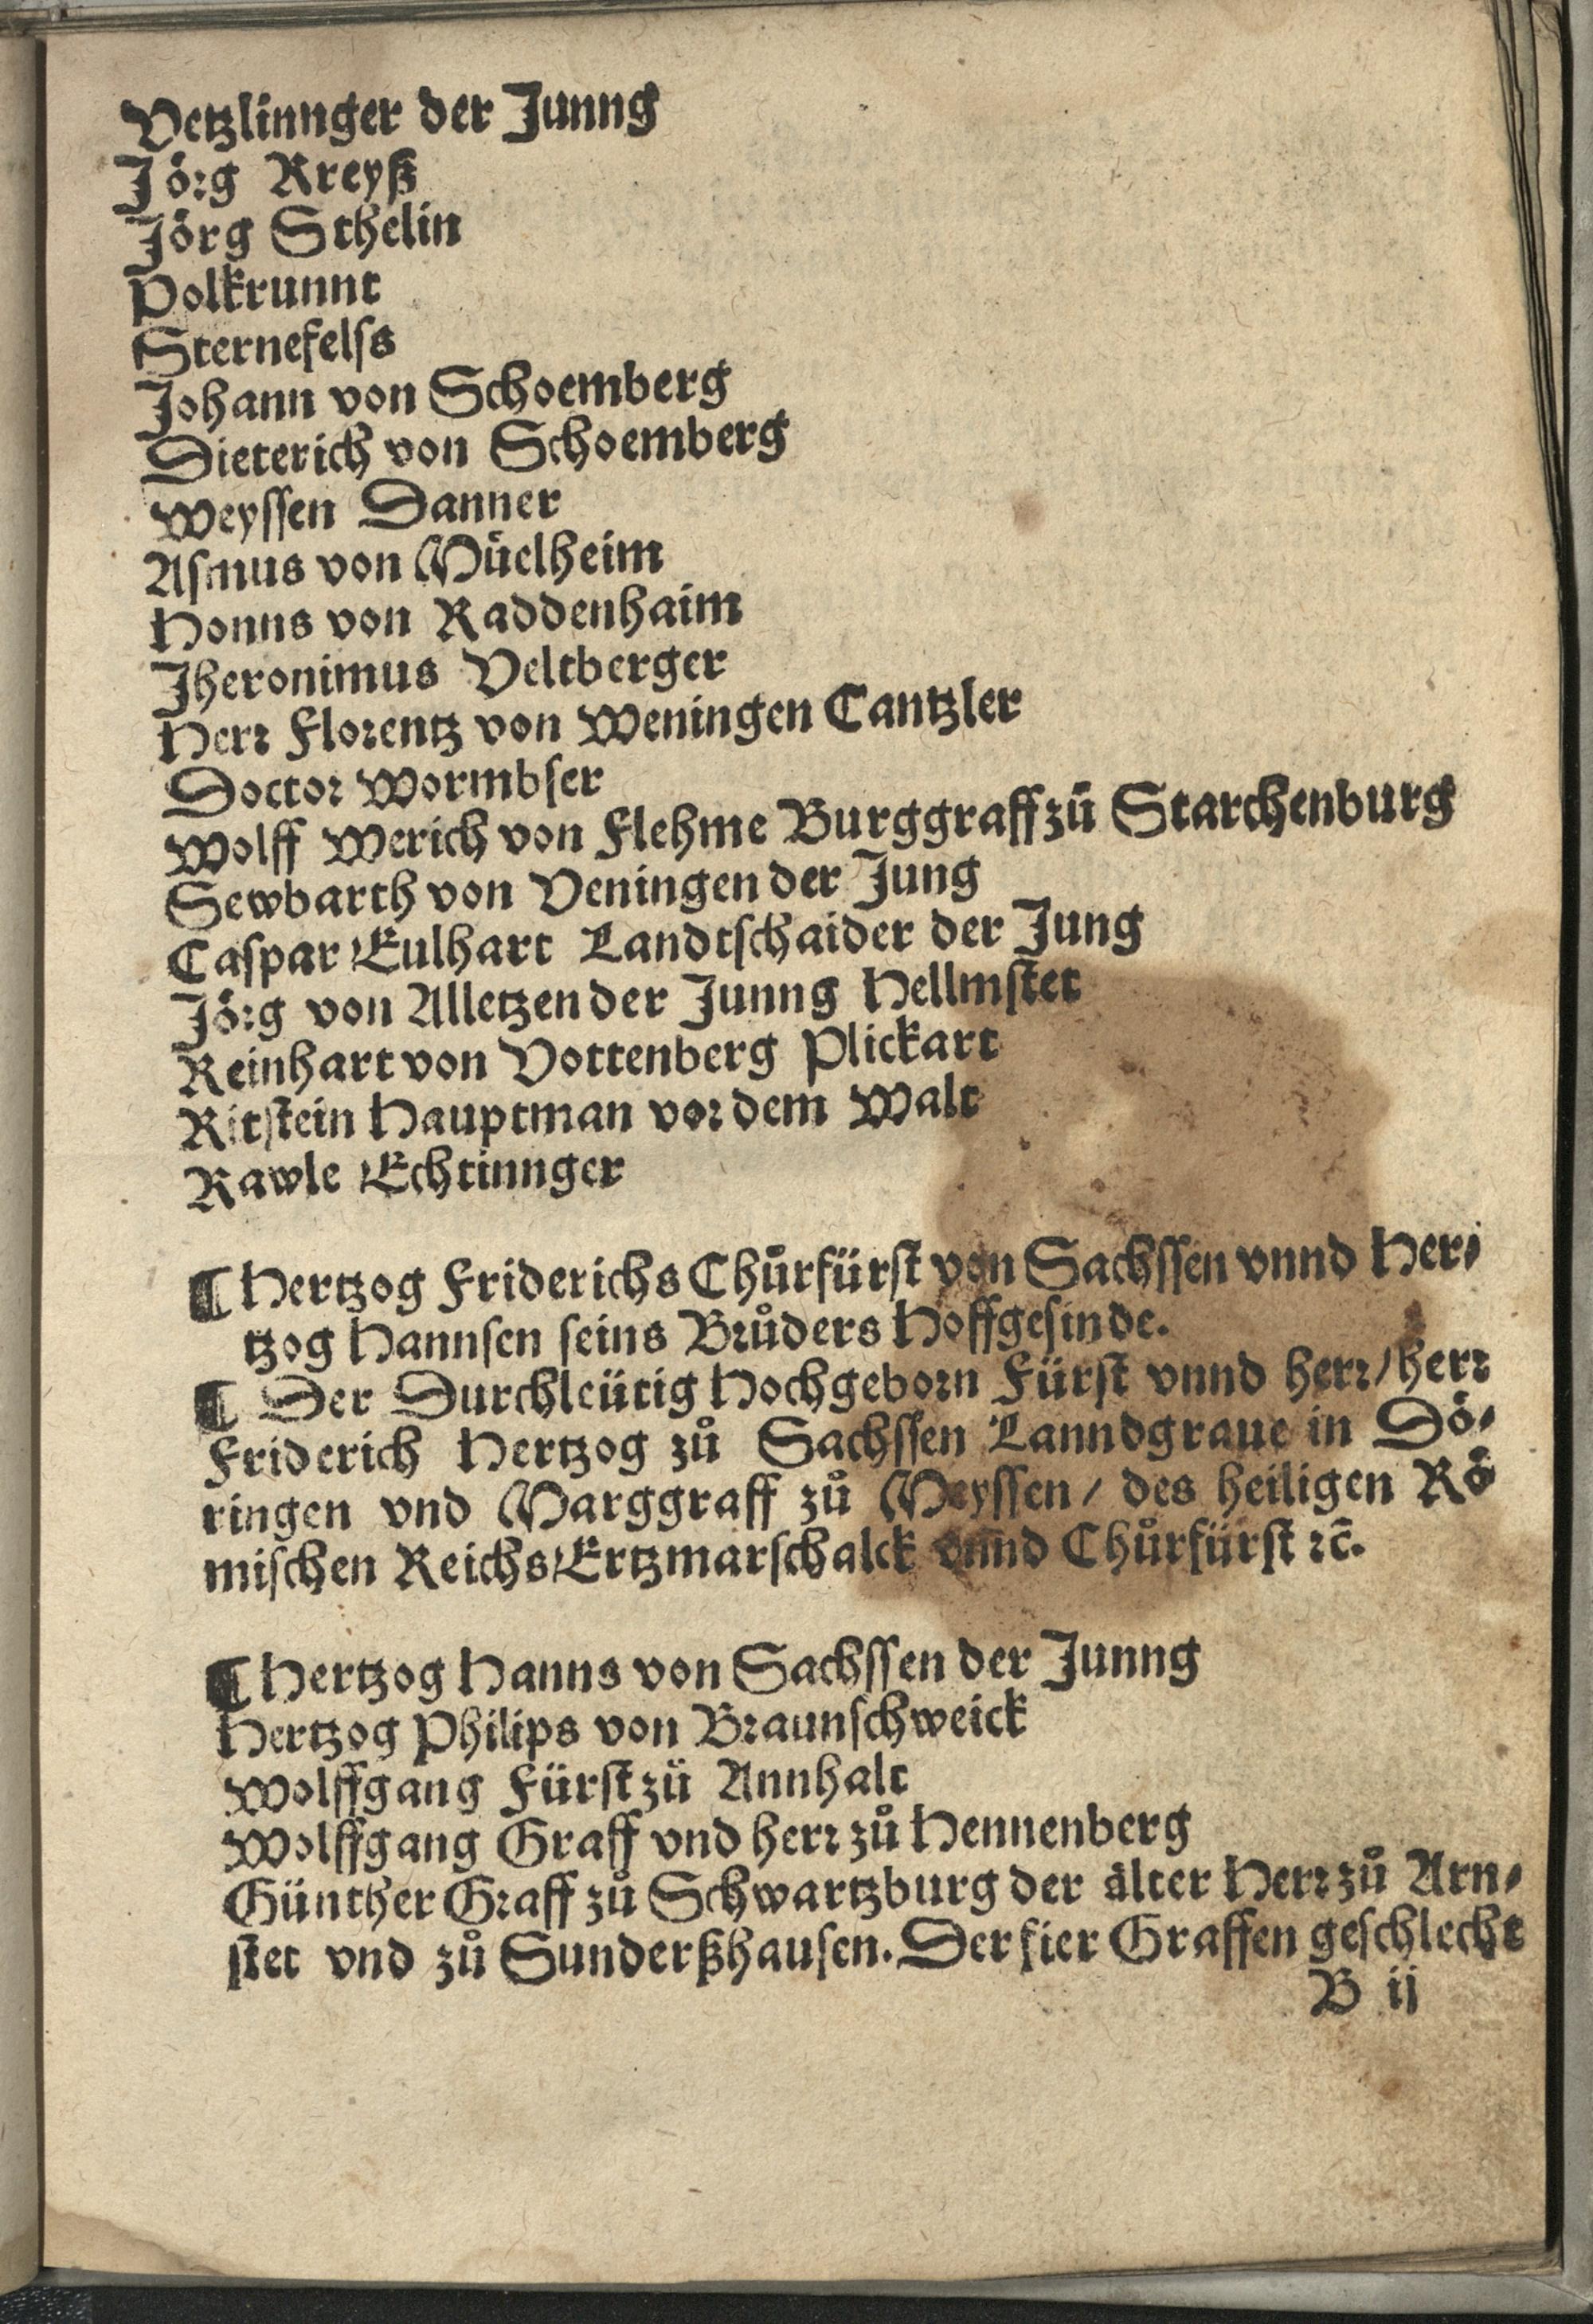 Vetzlinnger der Junng
Jörg Kreyß
Jörg Sthelin
Polkrunnt
Sternefelss
Johann von Schoemberg
Dieterich von Schoemberg
Weyssen Danner
Asmus von Müelheim
Honns von Raddenhaim
Jheronimus Veltberger
Herr Florentz von Weningen Cantzler
Doctor Wormbser
Wolff Werich von Flehme Burggraff zů Starchenburg
Sewbarth von Veningen der Jung
Caspar Eulhart Landtschaider der Jung
Jörg von Alletzen der Junng Hellmstet
Reinhart von Vottenberg Plickart
Ritstein Hauptman vor dem Walt
Rawle Echtinnger
¶ Hertzog Friderichs Chůrfürst von Sachssen vnnd Her⸗
tzog Hannsen seins Brůders Hoffgesinde.
¶ Der Durchleütig Hochgeborn Fürst vnnd herr/herr
Friderich Hertzog zů Sachssen Lanndgraue in Dö⸗
ringen vnd Marggraff zů Meyssen/ des heiligen Rö
mischen Reichs Ertzmarschalck vnnd Chůrfürst ꝛc̄.
¶ Hertzog Hanns von Sachssen der Junng
Hertzog Philips von Braunschweick
Wolffgang Fürst zü Annhalt
Wolffgang Graff vnd herr zů Hennenberg
Günther Graff zů Schwartzburg der älter Herr zů Arn⸗
stet vnd zů Sunderßhausen. Der fier Graffen geschlecht
B ij